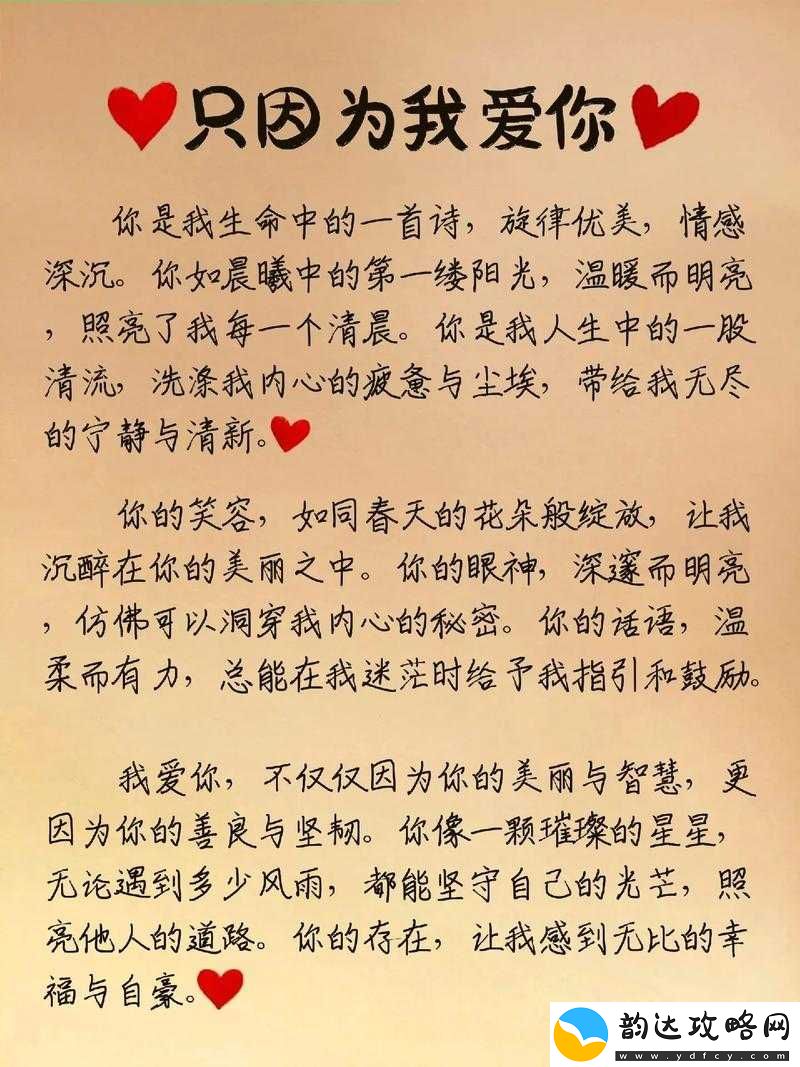 只因为我爱你
你是我生命中的一首诗，旋律优美，情感
深沉。你如晨曦中的第一缕阳光，温暖而明亮
，照亮了我每一个清晨。你是我人生中的一股
清流，洗涤我内心的疲惫与尘埃，带给我无尽
的宁静与清新。
你的笑容，如同春天的花朵般绽放，让我
沉醉在你的美丽之中。你的眼神，深邃而明亮
，仿佛可以洞穿我内心的秘密。你的话语，温
柔而有力，总能在我迷茫时给予我指引和鼓励。
我爱你，不仅仅因为你的美丽与智慧，更
因为你的善良与坚韧。你像一颗璀璨的星星，
无论遇到多少风雨，都能坚守自己的光芒，照
亮他人的道路。你的存在，让我感到无比的幸
福与自豪。
韵达攻略网
www.ydfcy.com